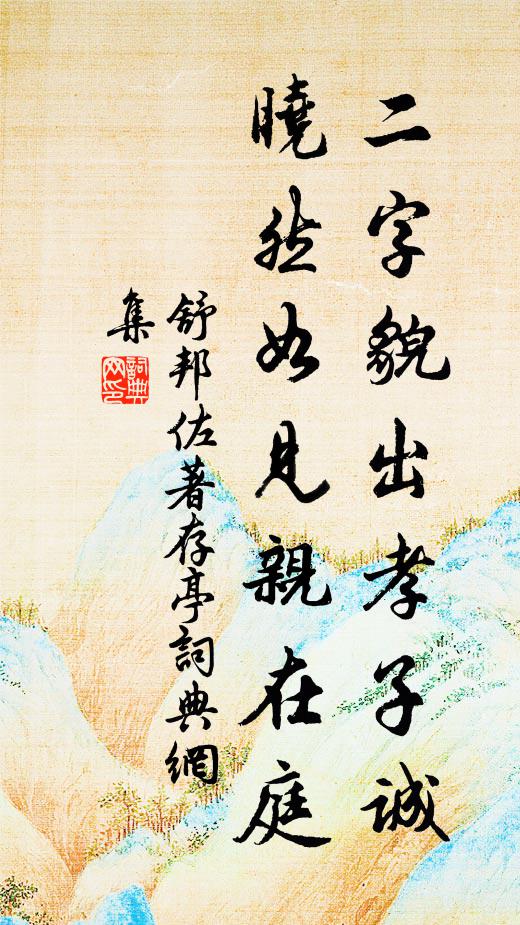 二字貌出孝子誠
曉然如見親在庭
舒邦佐著存亭詞典網
集
詞典
网印